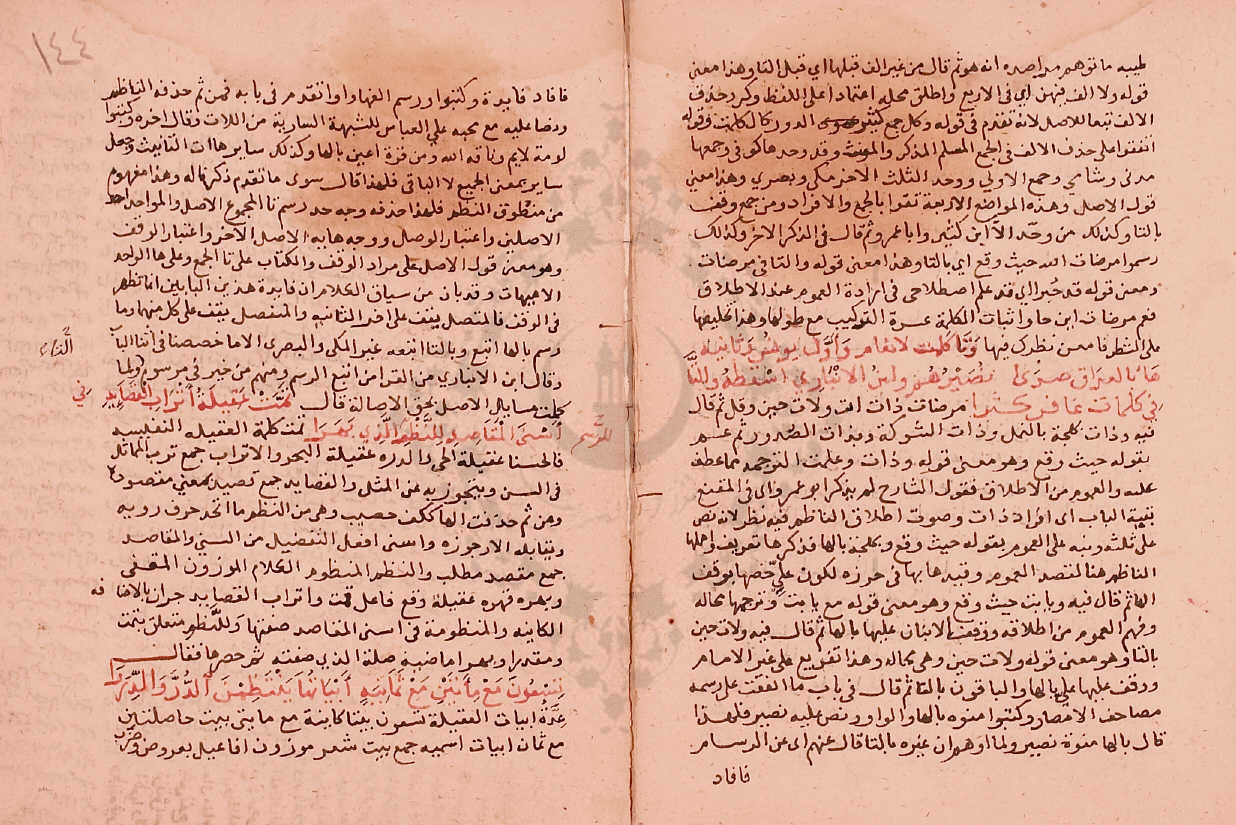 طيبه ما توهم مراصده انه هو ثم قال من غير الف قبلها اي قبل التا وهذا معنى
قوله ولا الف فيهن اي في الاربع واطلق محله اعتمادا على اللفظ وكرر حذف
الالف تبعا للاصل لانه تقدم في قوله وكل جمع كثير الدور كالكلمت وقوله
اتفقوا على حذف الالف في الجمع المسلم المذكر والمونث وقد وحدها كوفي وجمعها
مدني وشامي وجمع الاولي ووحد الثلث الاخر مكي وبصري وهذا معني
قول الاصل وهذه المواضع الاربعة تقرا بالجمع والافراد ومن جمع وقف
بالتا وكذلك من وحد الا ابن كثير وابا عمرو ثم قال في الذكر الاخر وكذلك
رسموا مرضات الله حيث وقع اي بالتا وهذا معنى قوله والتا في مرضات
ومعنى قوله قد خبرا اي قد علم اصطلاحي في ارادة العموم عند الاطلاق
فعم مرضات ابن حا واثبات الكلمة عسرة التركيب مع طولها وهذا تخليصها
على الشطر فامعن نظرك فيها وتا كلمت لانعام واول يونس وثانيه
ها بالعراق صدى نصيرهم وابن الانباري اسقطه والتا
في كلمات غافر كثرا مرضات ذات ات ولات حين وقل ثم قال
فيه وذات كلمة بالنمل وذات الشوكة وبذات الصدور ثم عمم
بقوله حيث وقع وهو معنى قوله وذات وعلمت الترجمه مما عطف
عليه والعموم من الاطلاق فقول الشارح لم يذكر ابو عمرو اي في المقنع
بقية الباب اي افراد ذات وصوت اطلاق الناظم فيه نظر لانه نص
على ثلثه ونبه على العموم بقوله حيث وقع وبكلمة بالها فذكرها تعريف واهملها
الناظم هنا لقصد العموم وقيدها بها في حرزه لكون علي خصها بوقف
الها ثم قال فيه ويا بت حيث وقع وهو معنى قوله مع يا بت وترجمها بحاله
وفهم العموم من اطلاقه ووقف الابنان عليها بالها ثم قال فيه ولات حين
بالتا وهو معنى قوله ولات حين وهي بحاله وهذا تفريع على غير الامام
ووقف عليها علي بالها والباقون بالتا ثم قال في باب ما اتفقت على رسمه
مصاحف الامصار وكتبوا منوه بالها والواو ونص عليه نصير فلهذا
قال بالها منوة نصير ولما اوهم ان غيره بالتا قال عنهم اي عن الرسام
فافاد
١٤٤
فافاد فايدة وكتبوا ورسم الفها واوا تقدم في بابه فمن ثم حذفه الناظم
ونصا عليه مع محبه علي العباس للشبهة السارية من اللات وقال اخره وكتبوا
لومة لايم وناقة الله ومن قرة اعين بالها وكذلك ساير هاات التانيث وجعل
ساير بمعنى الجميع لا الباقي فلهذا قال سوى ما تقدم ذكرنا له وهذا مفهوم
من منطوق النظم فلهذا حذفه وجه حد رسم تا المجموع الاصل والمواحد احد
الاصلين واعتبار الوصل ووجه هايه الاصل الاخر واعتبار الوقف
وهو معنى قول الاصل على مراد الوقف والكتاب على تا الجمع وعلى ها الواحد
الاجهات وقد بان من سياق الكلام ان فايدة هذين البابين انما تظهر
في الوقف فالمتصل يقف على اخر الثانيه والمنفصل يقف على كل منهما وما
رسم بالها اتبع وبالتا اتبعه غير المكي والبصري الا ما خصصنا في اثنا البا
وقال ابن الانباري من القرا من اتبع الرسم ومنهم من خير في مرسوم ولما
كملت مسايل الاصل بحق الاصالة قال تمت عقيلة اتراب القصايد في
اسنى المقاصد للنظم الذي بهرا تمت كلمة العقيله النفيسه
فالحسنا عقيلة الحي والدره عقيلة البحر والاتراب جمع ترب المماثل
في السن ويتجوز به عن المثل والقصايد جمع قصيد بمعني مقصود
ومن ثم حذفت الها ككف خصيب وهي من النظم ما اتحد حرف رويه
ويقابله الارجوزه واسنى افعل التفضيل من السني والمقاصد
جمع مقصد مطلب والنظم المنظوم الكلام الموزون المقفى
وبهره قهره عقيلة وقع فاعل تمت واتراب القصايد جران بالاضا فه
الكاينه والمنظومة في اسنى المقاصد صفتها وللنظم متعلق بتمت
ومقدرا وبهرا ماضيه صلة الذي صفته ثم حصرها فقال
تسعون مع مائتين مع ثمانيه ابياتها ينتظمن الدر والدررا
عدة ابيات العقيلة تسعون بيتا كاينة مع مايتي بيت حاصلتين
مع ثمان ابيات اسميه جمع بيت شعر موزون افاعيل بعروض وضرب
للرسم